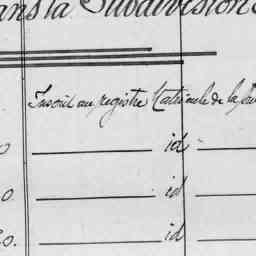 dans la Subdivision
Inscrit au registre Matricule de la
0 id
0. id
20. id